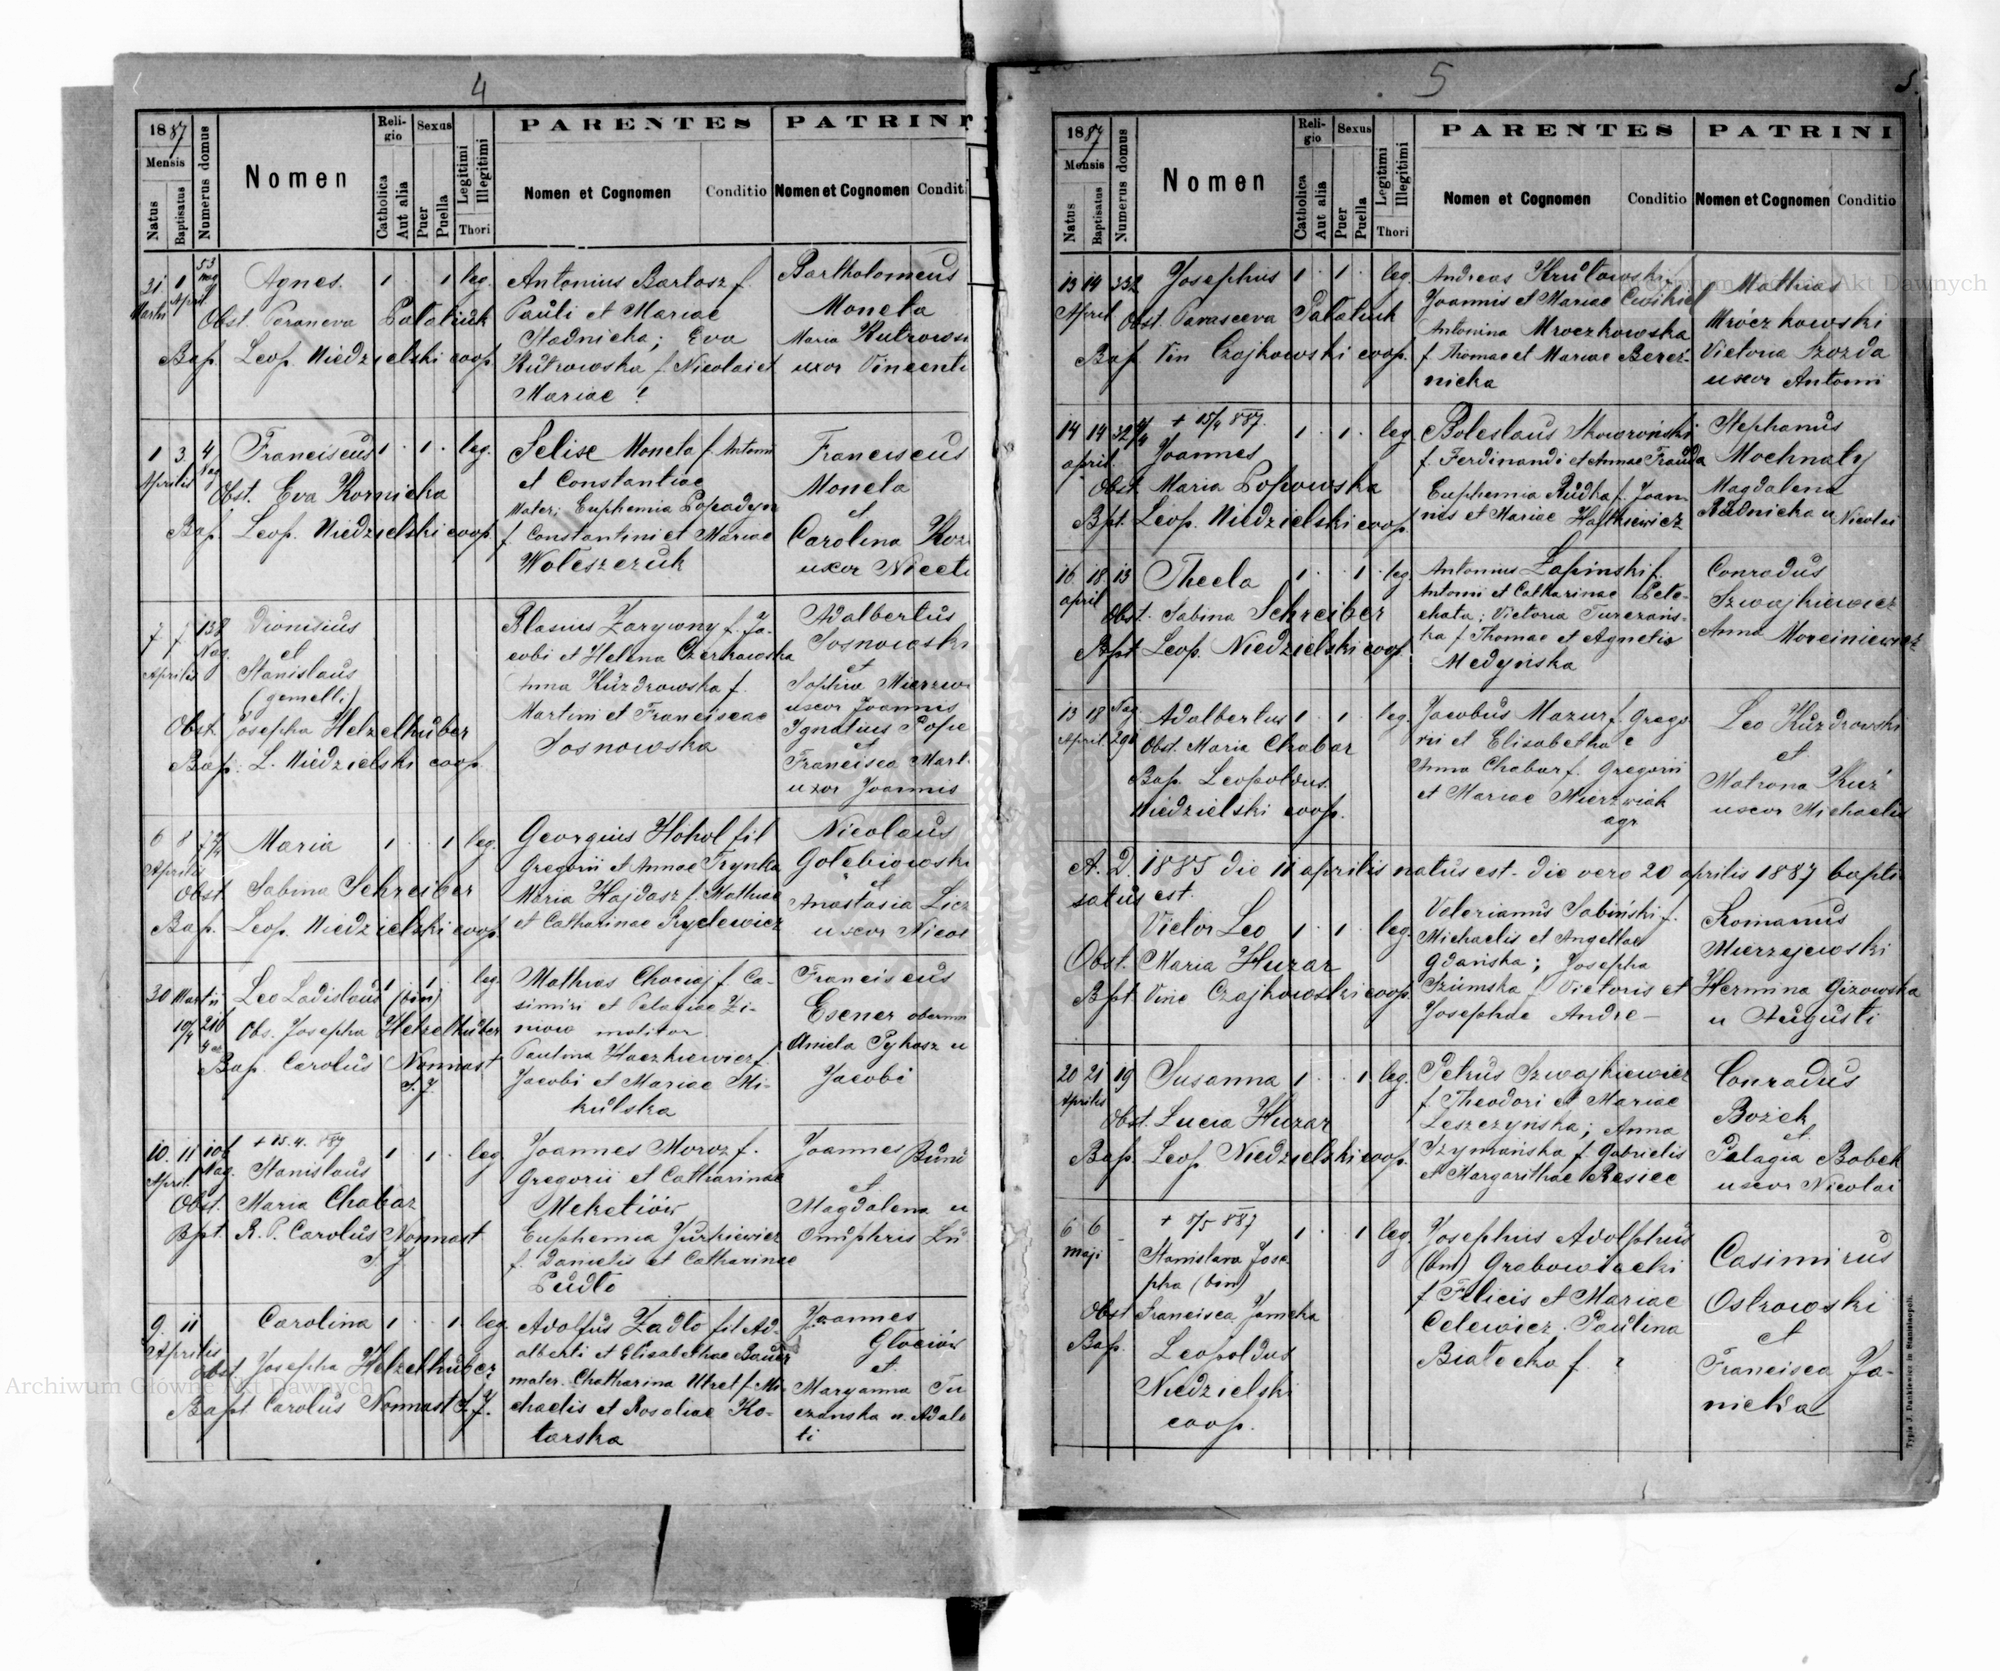 4
1887
Mensis
Natus
Baptisatus
Numerus domus
Nomen
Religio
Catholica
Aut alia
Sexus
Puer
Puella
Legitimi
Illegitimi
Thori
PARENTES
Nomen et Cognomen
Conditio
PATRINI
Nomen et Cognomen
Conditi
31 Martii 1 April 53
Agnes 1 1 leg.
Obst. Paraneva Palatiuk
Bap. Leop. Niedzielski coop.
Antonius Bartosz f.
Pauli et Mariae
Stadnicka; Eva
Kutrowska f. Nicolai et
Mariae ?
Bartholomeus
Moneta
Maria Kutrows
uxor Vincenti
1 3 4 Nag
Aprilis
Franciscus 1 1 leg.
Obst. Eva Kornicka
Bap. Leop. Niedzielski coop.
Felise Moneta f. Antoni
et Constantiae
Mater; Euphemia Popadyn
f. Constantini et Mariae
Woleszczuk
Franciscus
Moneta
et
Carolina Koz
uxor Niceti
7 7 138 Nag.
Aprilis
Dionisius
et
Stanislaus
(gemelli)
Obst. Josepha Helzelhuber
Bap. L. Niedzielski coop.
Blasius Zarywny f. Ja-
cobi et Helena Czerkawska
Anna Kuzdrowska f.
Martini et Franciscae
Sosnowska
Adalbertus
Sosnowski
et
Sophia Mierzwi
uxor Joannis
Ignatius Popie
et
Francisca Mart
uxor Joannis
6 8
Aprilis
Maria 1 1 leg.
Obst. Sabina Schreiber
Bap. Leop. Niedzielski coop.
Georgius Hohol fil
Gregorii et Annae Trynka
Maria Hajdasz f. Mathiae
et Catharinae Rydewicz
Nicolaus
Gołebiowski
et
Anastasia Licz
uxor Nicol
30 Martii 10/4 216
Leo Ladislaus (bin) 1 1 leg
Obs. Josepha Helzelhuber
Bap. Carolus Nonnast
S. J.
Mathias Chociaj f. Ca-
simiri et Pelagiae Zi-
niow molitor
Paulina Haczkiewicz f.
Jacobi et Mariae Mi-
kulska
Franciscus
Esener
Aniela Pykosz u
Jacobi
10 11 108 Nag.
April.
+ 15.4. 887
Stanislaus 1 1 leg
Obst. Maria Chabar
Bpt. R. P. Carolus Nonnast
S. J.
Joannes Moroz f.
Gregorii et Catharinae
Meketiów
Euphemia Jurkiewicz
f. Danielis et Catharinae
Pudło
Joannes Bund
et
Magdalena u
Onuphris Lu
9 11
Aprilis
Carolina 1 1 leg
Obst. Josepha Helzelhuber
Bapt Carolus Nonnast S. J.
Adolfus Zadlo fil Ad-
alberti et Elisabethae Bauer
mater. Chatharina Ukret f. Mi-
chaelis et Rosaliae Ko-
tarska
Joannes
Glociów
et
Maryanna Tu
czanska u. Adal
ti
5
5.
1887
Mensis
Natus
Baptisatus
Numerus domus
Nomen
Religio
Catholica
Aut alia
Sexus
Puer
Puella
Legitimi
Illegitimi
Thori
PARENTES
Nomen et Cognomen
Conditio
PATRINI
Nomen et Cognomen
Conditio
13 14 332
April
Josephus 1 1 leg
Obst. Parasceva Palatiuk
Bap. Vin Czajkowski coop.
Andreas Krutowski f.
Joannis et Mariae Cwikiel
Antonina Mroczkowska
f. Thomae et Mariae Berez-
nicka
Mathias
Mróczkowski
Victoria Szozda
uxor Antoni
14 14
april
+ 15/4 887.
Joannes 1 1 leg.
Obst Maria Popowska
Bpt. Leop. Niedzielski coop.
Boleslaus Skowroński
f. Ferdinandi et Annae Frauda
Euphemia Rudka f. Joan-
nis et Mariae Haftkiewicz
Stephanus
Mochnaty
Magdalena
Rudnicka u Nicolai
16 18 13
april
Thecla 1 1 leg
Obst. Sabina Schreiber
Bapt Leop. Niedzielski coop.
Antonius Łapinski f.
Antoni et Catharinae Pele-
chata; Victoria Turczańs-
ka f. Thomae et Agnetis
Medyńska
Conradus
Szwajkiewicz
Anna Morciniewicz
13 18 Nag
April. 296
Adalbertus 1 1 leg.
Obst. Maria Chabar
Bap. Leopoldus
Niedzielski coop.
Jacobus Mazur f. Grego
rii et Elisabethae
Anna Chabar f. Gregorii
et Mariae Mierzwiak
agr
Leo Kuzdrowski
et
Matrona Kuź
uxor Michaelis
A. D. 1885 die 11 aprilis natus est - die vero 20 aprilis 1887 bapti
satus est.
Victor Leo 1 1 leg.
Obst. Maria Huzar
Bpt. Vinc Czajkowski coop.
Valerianus Sabiński f.
Michaelis et Angellae
Gdańska; Josepha
Szumska f. Victoris et
Josephae Andre-
Romanus
Mierzejewski
Hermina Gizowska
u Augusti
20 21 19
Aprilis
Susanna 1 1 leg.
Obst. Lucia Huzar
Bap. Leop. Niedzielski coop.
Petrus Szwajkiewicz
f. Theodori et Mariae
Leszczynska; Anna
Szymańska f. Gabrielis
et Margarithae Resiec
Conradus
Bożek
et
Pelagia Bobek
uxor Nicolai
6 6 -
Maji
+ 8/5 887
Stanislava Jose
pha (bin) 1 1 leg.
Obst Francisca Janicka
Bap. Leopoldus
Niedzielski
coop.
Josephus Adolphus
(bin) Grabowiacki
f. Felicis et Mariae
Celewicz. Paulina
Białecka f. ?
Casimirus
Ostrowski
et
Francisca Ja-
nicka
Typis J. Dankiewicz in Stanislaopoli.
Archiwum Główne Akt Dawnych
Archiwum Główne Akt Dawnych